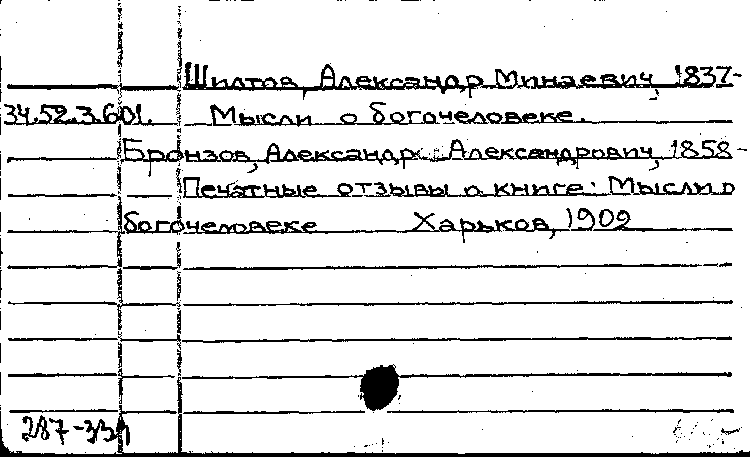 Шилтов, Александр Минаевич, 1837-
34.52.3.601. Мысли о богочеловеке.
Бронзов, Александр Александрович, 1858-
Печатные отзывы о книге: Мысли о
богочеловеке Харьков, 1902